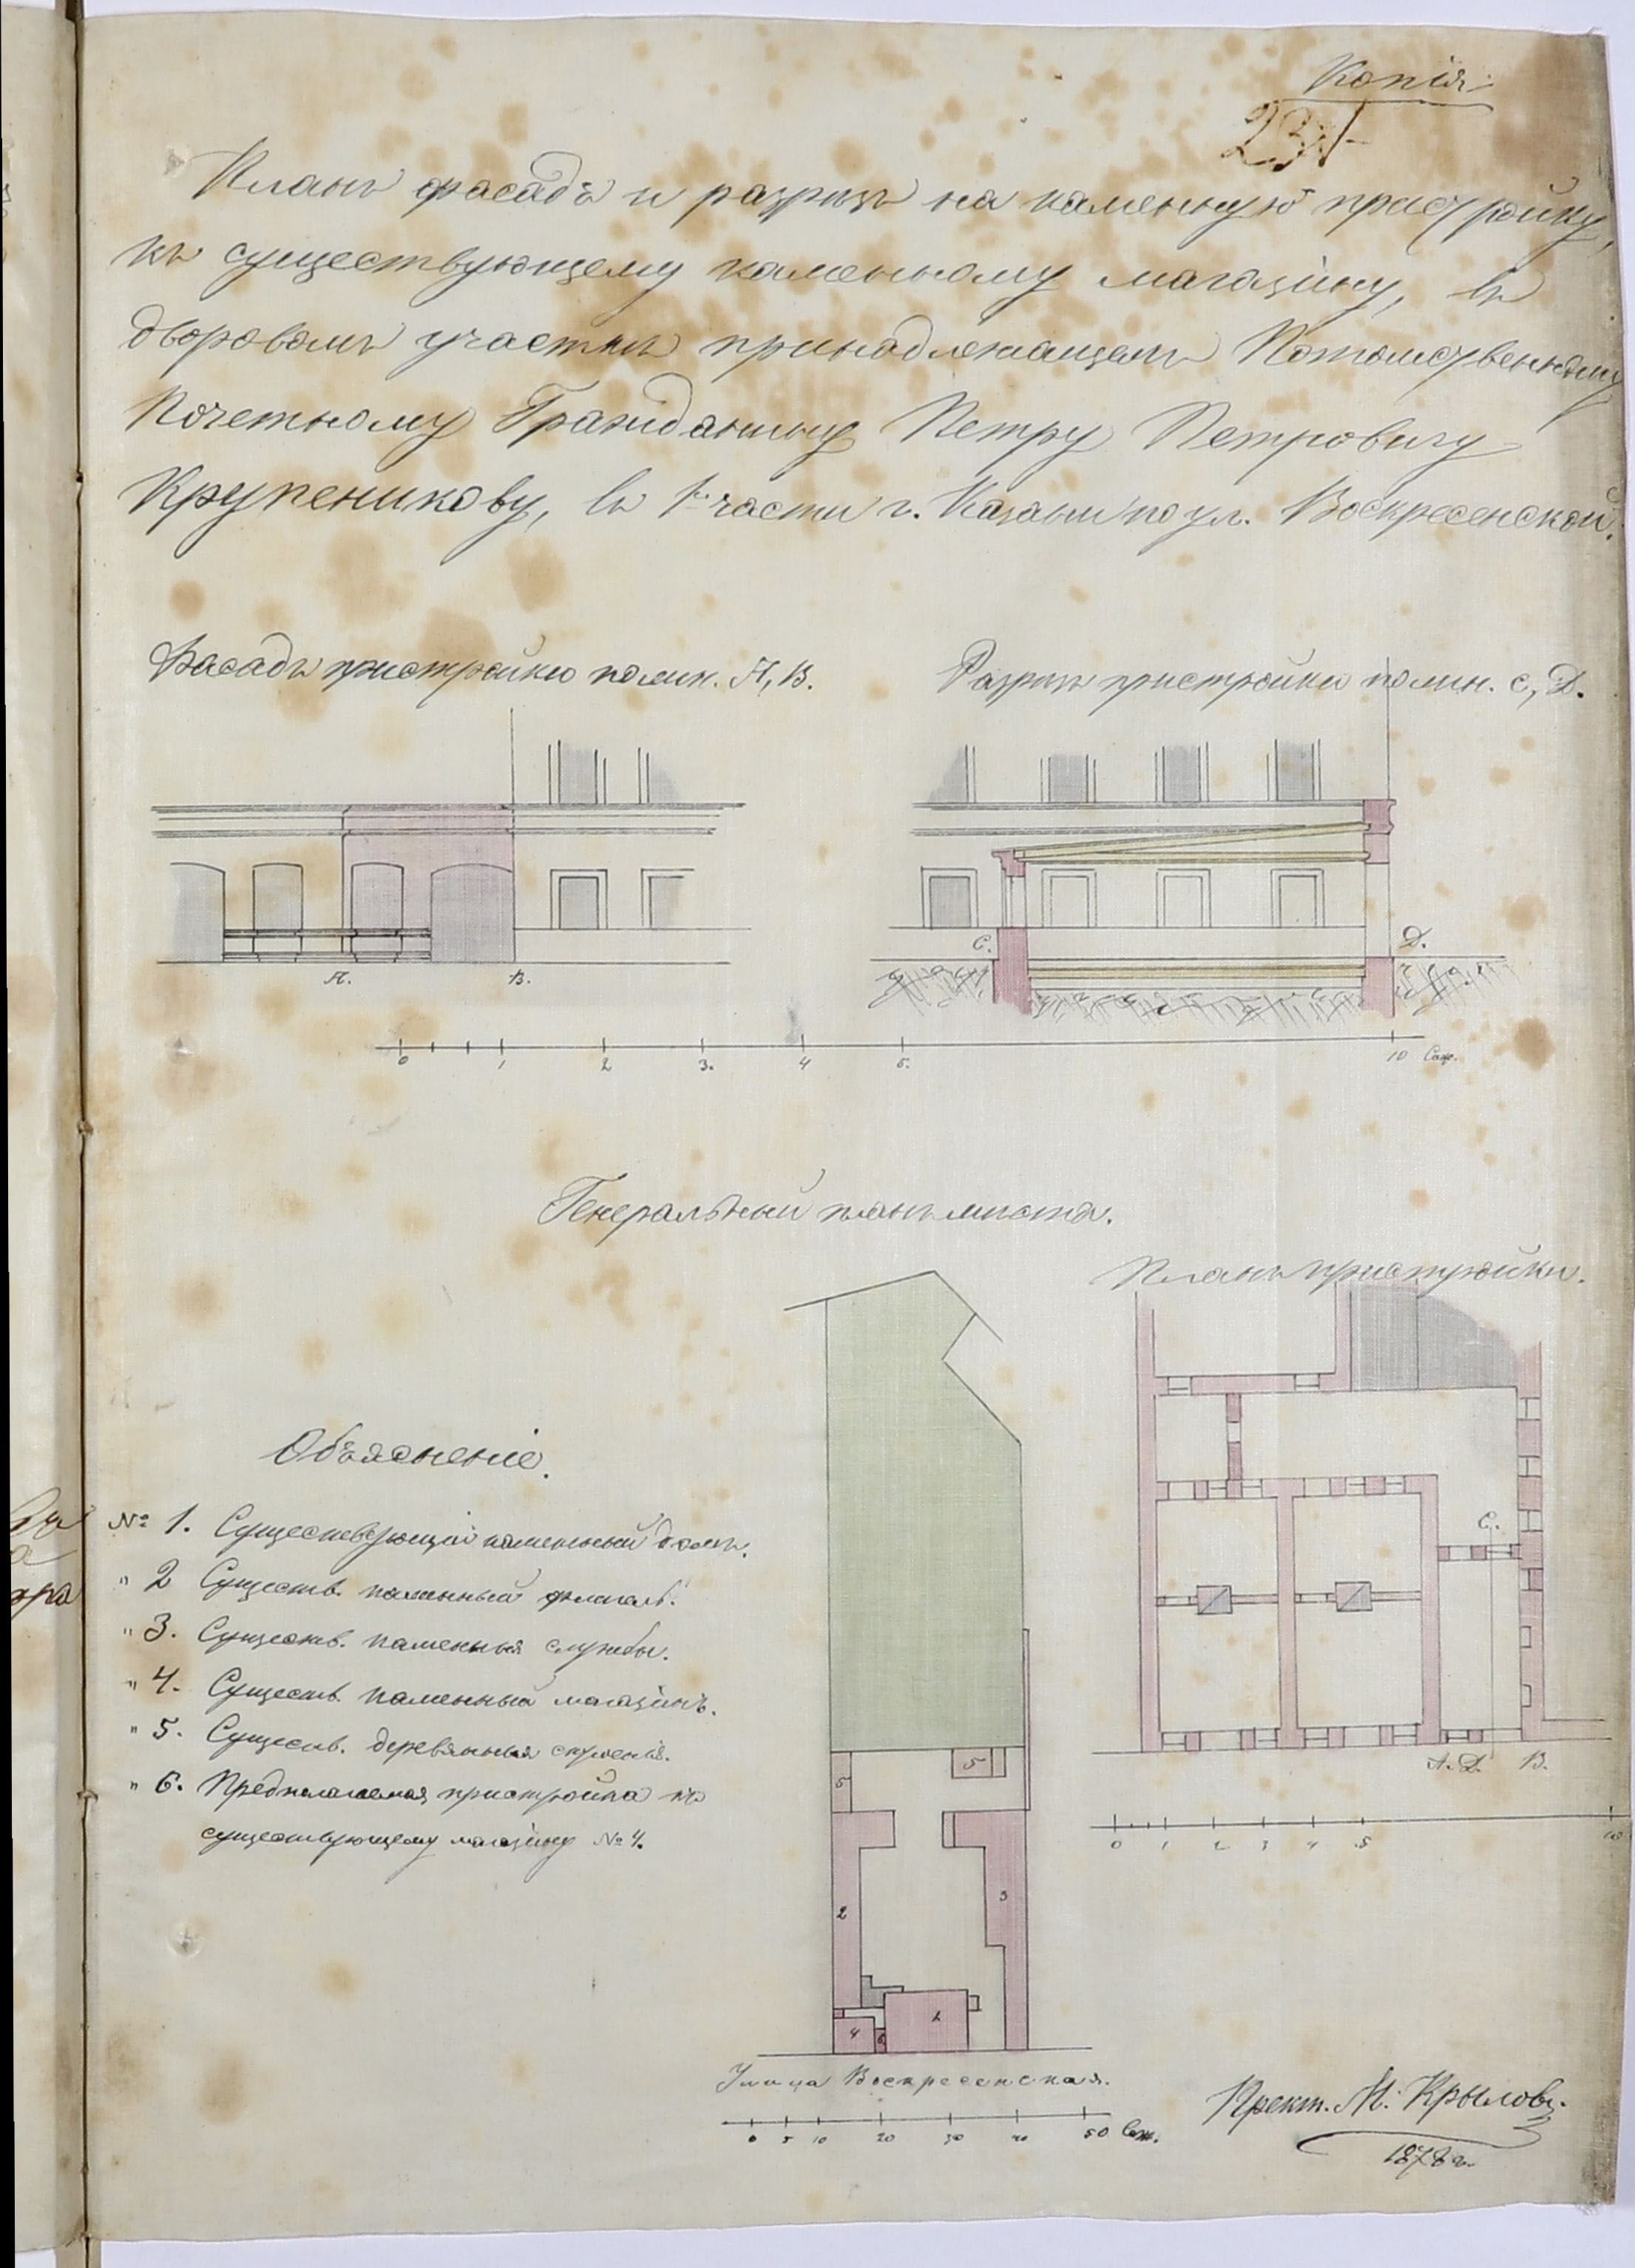 Копія
Планъ фасадъ и разрѣзъ на каменную пристройку,
къ существующему каменному магазину, въ
дворовомъ участкѣ принадлежащемъ Потомственному
Почетному Гражданину Петру Петровичу
Крупеникову, въ 1й части г. Казани по ул. Воскресенской.
Фасадъ пристройки по лин. А, В.
Разрѣзъ пристройки по лин. С, D.
С. D.
А. В.
0 1 2 3. 4 5. 10 Саж.
Генеральный планъ мѣста.
Планъ пристройки.
Объясненіе.
№ 1. Существующій каменный домъ.
" 2 Существ. каменный флигель.
" 3. Существ. каменныя службы.
" 4. Существ. каменный магазинъ.
" 5. Существ. деревянныя строенія.
" 6. Предполагаемая пристройка къ
существующему магазину № 4.
С.
А. D. В.
0 1 2 3 4 5 10
5 5
2 3
4 6 1
Улица Воскресенская.
0 5 10 20 30 40 50 Саж.
Прект. М. Крыловъ.
1878 г.